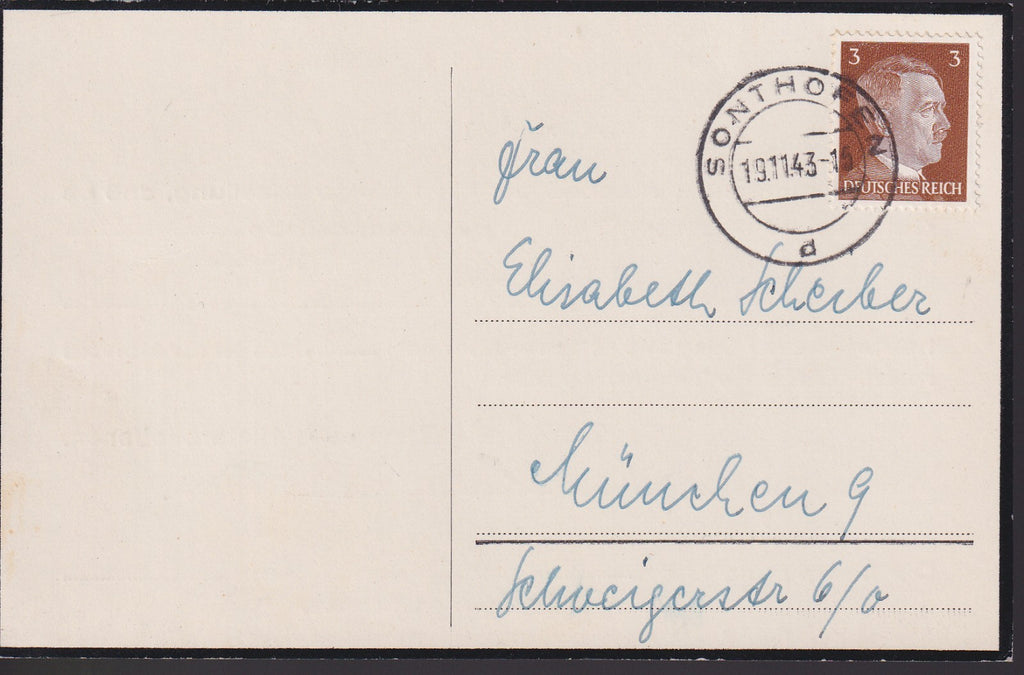 3 3
DEUTSCHES REICH
SONTHOFEN
19.11.43-
d
Frau
Elisabeth Scheiber
München 9
Schweigerstr 6/0